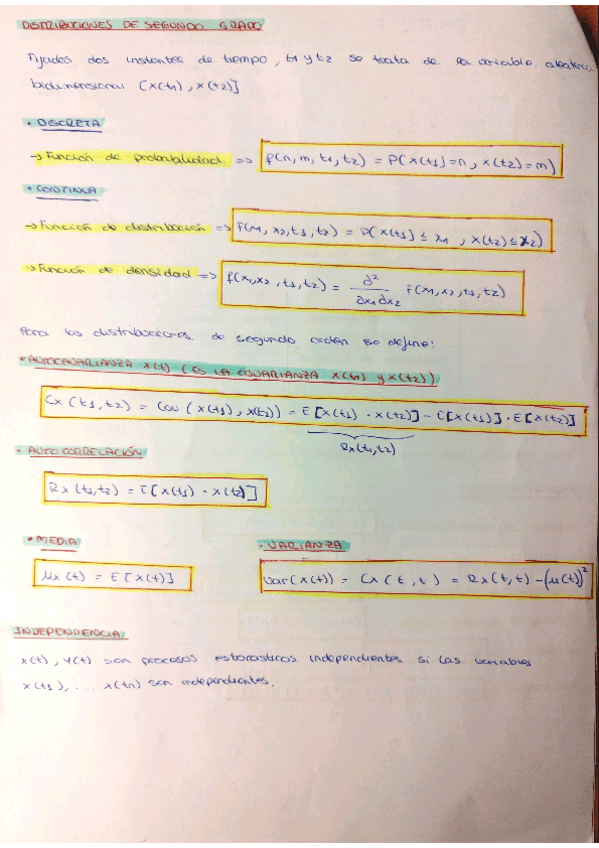 DISTRIBUCIONES DE SEGUNDO GRADO
Fijados dos instantes de tiempo, t1 y t2 se trata de la variable aleatoria
bidimensional [X(t1), X(t2)]
• DISCRETA
→ Función de probabilidad => P(n, m, t1, t2) = P(X(t1)=n, X(t2)=m)
• CONTINUA
→ Función de distribución => F(x1, x2, t1, t2) = P(X(t1) ≤ x1, X(t2) ≤ x2)
→ Función de densidad => f(x1, x2, t1, t2) = ∂²/∂x1∂x2 F(x1, x2, t1, t2)
Para las distribuciones de segundo orden se define:
• AUTOCOVARIANZA X(t) (ES LA COVARIANZA X(t1) y X(t2))
Cx(t1, t2) = Cov(X(t1), X(t2)) = E[X(t1) · X(t2)] - E[X(t1)] · E[X(t2)]
Rx(t1, t2)
• AUTOCORRELACIÓN
Rx(t1, t2) = E[X(t1) · X(t2)]
• MEDIA
μx(t) = E[X(t)]
• VARIANZA
Var(X(t)) = Cx(t, t) = Rx(t, t) - (μ(t))²
INDEPENDENCIA
X(t), Y(t) son procesos estocasticos independientes si las variables
X(t1), ... X(tn) son independientes.